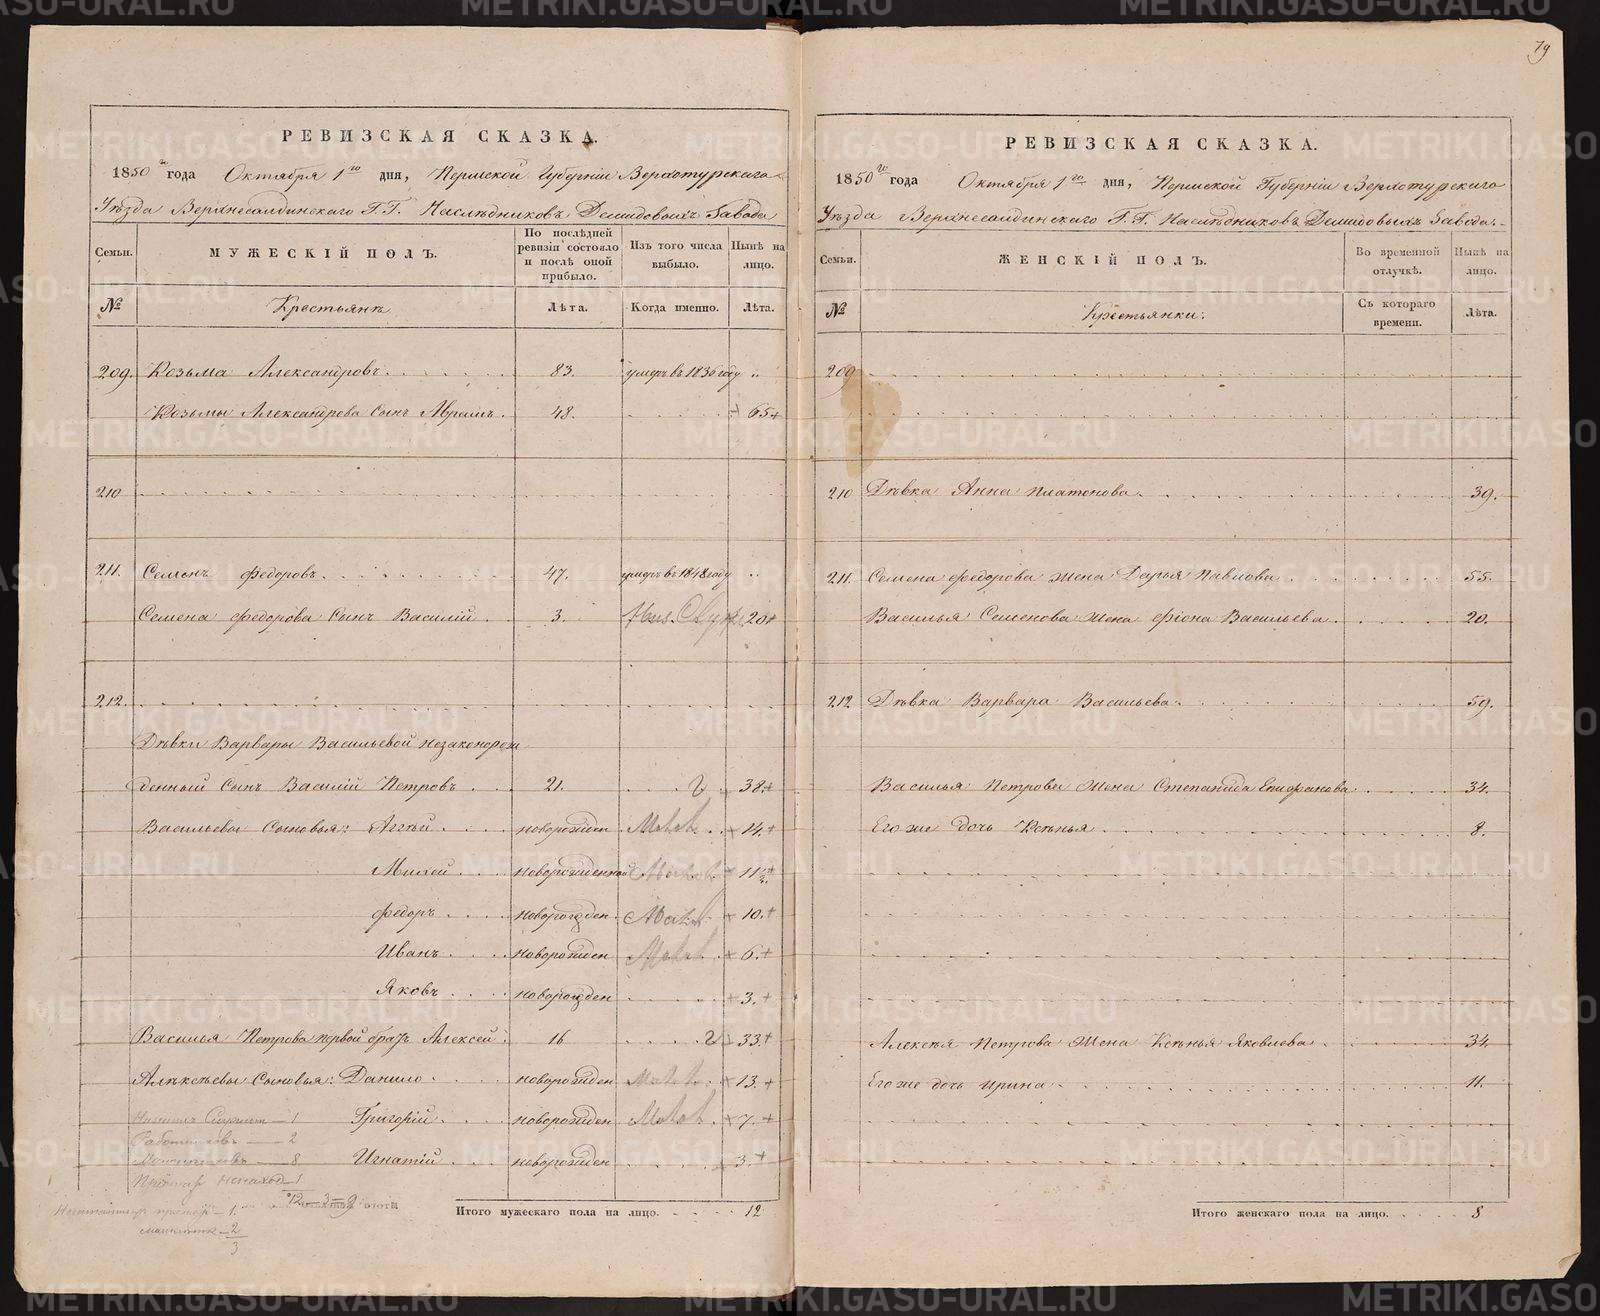 79
РЕВИЗСКАЯ СКАЗКА.
1850го года Октября 1го дня, Пермской Губерніи Верхотурскаго
Уѣзда Верхнесалдинскаго Г.Г. Наслѣдниковъ Демидовыхъ Завода
Семьи. МУЖЕСКІЙ ПОЛЪ. По послѣдней ревизіи состояло и послѣ оной прибыло. Изъ того числа выбыло. Нынѣ на лицо.
№ Крестьянъ Лѣта. Когда именно. Лѣта.
209. Козьма Александровъ 83. умеръ въ 1836 году
Козьмы Александрова сынъ Абрамъ 48. 65
210
211. Семенъ Федоровъ 47. умеръ въ 1848 году
Семена Федорова Сынъ Василій 3. 20
212.
Дѣвки Варвары Васильевой незаконорож
денный Сынъ Василій Петровъ 21. 38
Васильевы Сыновья: Аггѣй новорожден 14.
Михей новорожденной 11½
Федоръ новорожден 10.
Иванъ новорожден 6.
Яковъ новорожден 3.
Василья Петрова первой братъ Алексей 16 33
Алексѣевы Сыновья: Данило новорожден 13.
Григорій новорожден 7.
Игнатій новорожден 3.
Работниковъ — 2
12 — 3 = 9
Итого мужескаго пола на лицо. 12
РЕВИЗСКАЯ СКАЗКА.
1850го года Октября 1го дня, Пермской Губерніи Верхотурскаго
Уѣзда Верхнесалдинскаго Г.Г. Наслѣдниковъ Демидовыхъ Завода.
Семьи. ЖЕНСКІЙ ПОЛЪ. Во временной отлучкѣ. Нынѣ на лицо.
№ Крестьянки: Съ котораго времени. Лѣта.
209
210 Дѣвка Анна Платонова 39.
211. Семена Федорова жена Дарья Павлова 55.
Василья Семенова жена Фіона Васильева 20.
212 Дѣвка Варвара Васильева 59.
Василья Петрова жена Степанида Епифанова 34.
Его же дочь Ксѣнья 8.
Алексѣя Петрова жена Ксѣнья Яковлева 34.
Его же дочь Ирина 11.
Итого женскаго пола на лицо. 8
METRIKI.GASO-URAL.RU